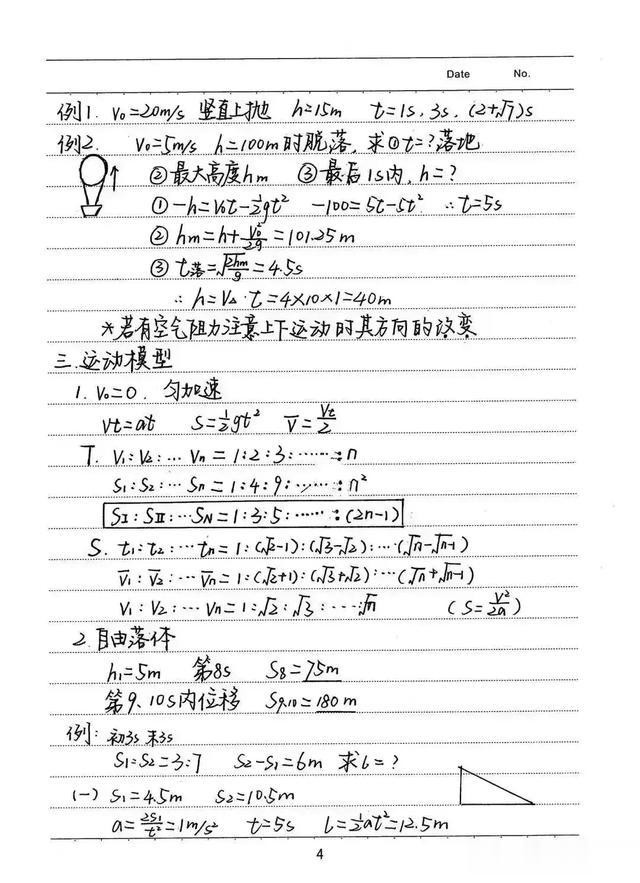 Date No.
例1. V₀=20m/s 竖直上抛 h=15m t=1s, 3s, (2+√7)s
例2. V₀=5m/s h=100m时脱落, 求①t=?落地
②最大高度hm ③最后1s内, h=?
①-h=V₀t-½gt² -100=5t-5t² ∴t=5s
②hm=h+V₀²/2g=101.25m
③t落=√(2hm/g)=4.5s
∴h=V · t=4×10×1=40m
*若有空气阻力注意上下运动时其方向的改变
三.运动模型
1. V₀=0. 匀加速
Vt=at S=½gt² V̅=Vt/2
T. V₁:V₂:⋯Vn=1:2:3:⋯⋯:n
S₁:S₂:⋯Sn=1:4:9:⋯⋯:n²
SⅠ:SⅡ:⋯SN=1:3:5:⋯⋯:(2n-1)
S. t₁:t₂:⋯tn=1:(√2-1):(√3-√2):⋯(√n-√n-1)
V̅₁:V̅₂:⋯V̅n=1:(√2+1):(√3+√2):⋯(√n+√n-1)
V₁:V₂:⋯Vn=1:√2:√3:⋯√n (S=V²/2a)
2.自由落体
h₁=5m 第8s S8=75m
第9、10s内位移 S9.10=180m
例: 初3s 末3s
S₁=S₂=3:7 S₂-S₁=6m 求l=?
(一) S₁=4.5m S₂=10.5m
a=2S₁/t²=1m/s² t=5s l=½at²=12.5m
4